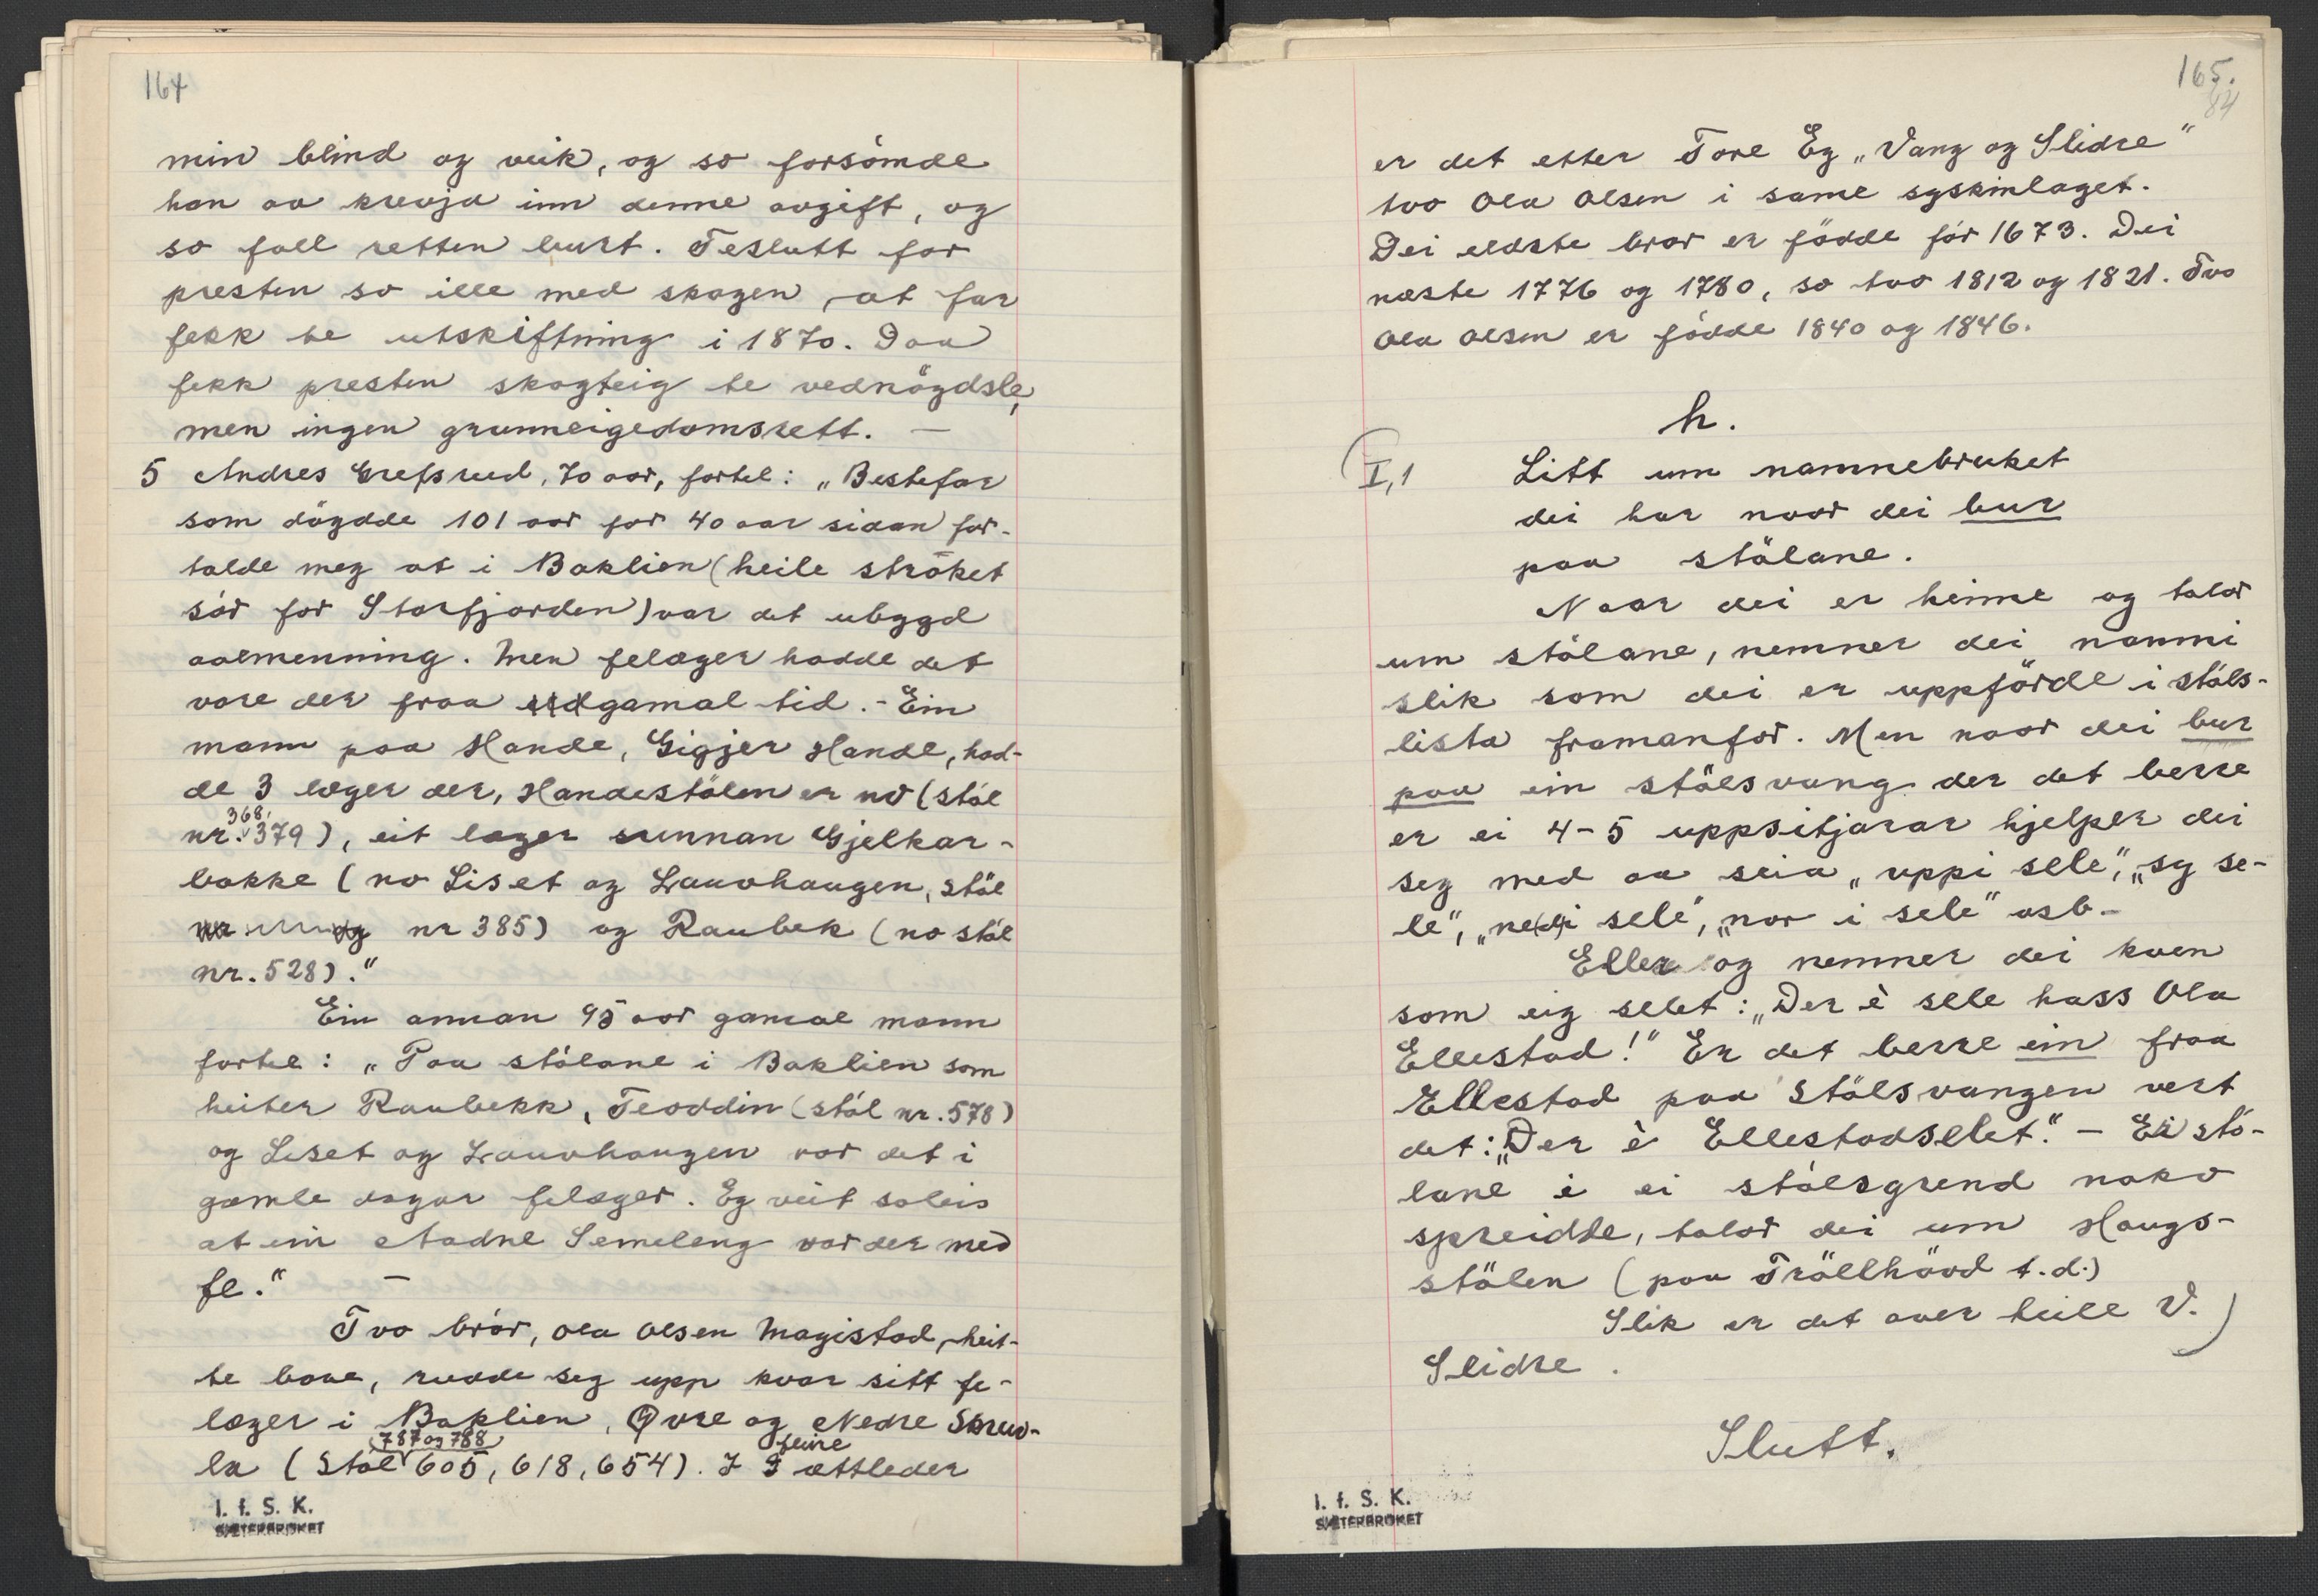 164
min blind og veik, og so forsömde
han aa krevja inn denne avgift, og
so fall retten burt. Teslutt for
presten so ille med skogen, at far
fekk te utskiftning i 1870. Daa
fekk presten skogteig te vednögdsle,
men ingen grunneigedomsrett. —
5 Andres Grefsrud, 70 aar, fortel: „Bestefar
som döydde 101 aar for 40 aar sidan for-
talde meg at i Baklien (heile ströket
sör for Storfjorden) var det ubygd
aalmenning. Men felæger hadde det
vore der fraa gamal tid. - Ein
mann paa Hande, Gigjer Hande, had-
de 3 læger der, Handestölen er no (stöl
368,
nr. 379), eit læger sunnan Gjelkar-
bakke (no Liset og Lauvhaugen, stöl
nr 385) og Raubek (no stöl
nr. 528)."
Ein annan 95 aar gamal mann
fortel: „Paa stölane i Baklien som
heiter Raubekk, Teoddin (stöl nr. 578)
og Liset og Lauvhaugen var det i
gamle dagar felæger. Eg veit soleis
at ein Andne Semeleng var der med
fe." —
Tvo brör, Ola Olsen Magistad, heit-
te baae, rudde seg upp kvar sitt fe-
læger i Baklien, Övre og Nedre Skruv-
787 og 788 fleire
la (Stöl 605, 618, 654). I ættleder
I. f. S. K.
SÆTERBRUKET
165.
84
er det etter Tore Ey „Vang og Slidre"
tvo Ola Olsen i same syskinlaget.
Dei eldste brör er födde för 1673. Dei
næste 1776 og 1780, so tvo 1812 og 1821. Tvo
Ola Olsen er födde 1840 og 1846.
h.
I,1 Litt um namnebruket
dei har naar dei bur
paa stölane.
Naar dei er heime og talar
um stölane, nemner dei namni
slik som dei er uppförde i stöls-
lista framanfor. Men naar dei bur
paa ein stölsvang der det berre
er ei 4-5 uppsitjarar hjelper dei
seg med aa seia „uppi sele", „sy se-
le", „nedi sele", „nor i sele" osb. -
Eller og nemner dei kven
som eig selet: „Der è sele hass Ola
Ellestad!" Er det berre ein fraa
Ellestad paa stölsvangen vert
det: „Der è Ellestadselet." - Er stö-
lane i ei stölsgrend noko
spreidde, talar dei um Haugs-
stölen (paa Tröllhövd t.d.)
Slik er det over heile V.
Slidre.
Slutt.
I. f. S. K.
SÆTERBRUKET